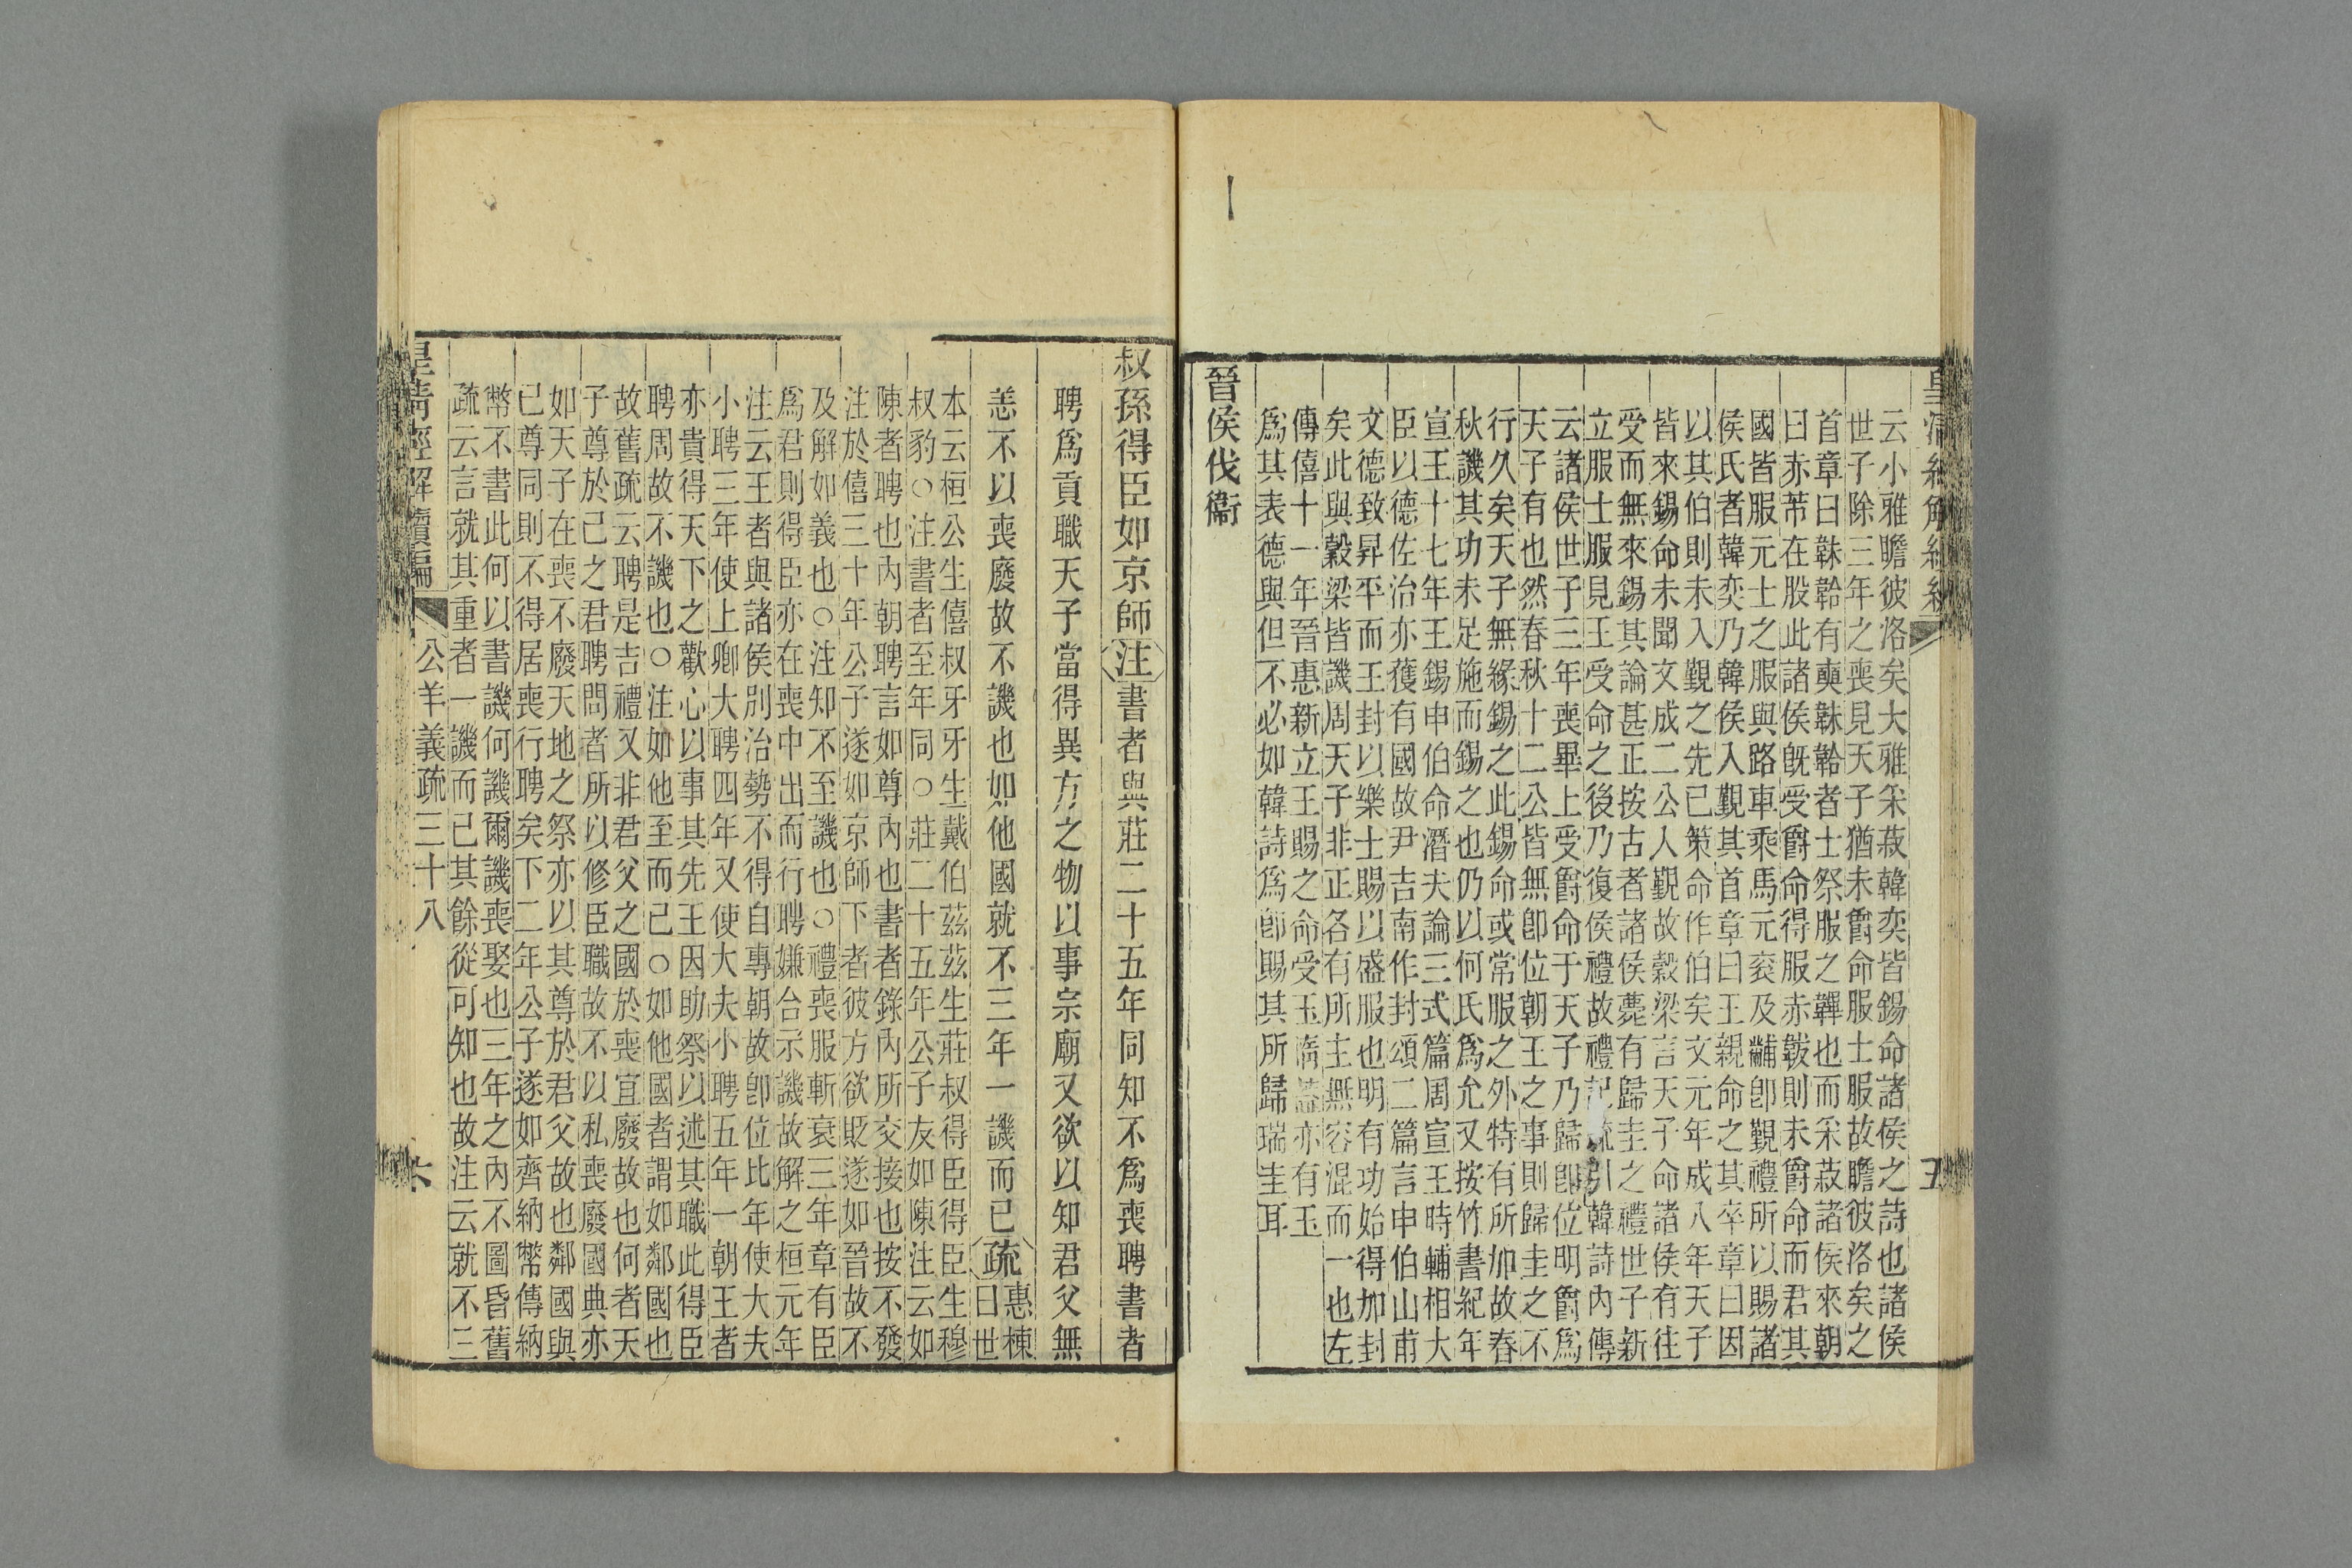 皇清經解續編
五
云小雅瞻彼洛矣大雅采菽韓奕皆錫命諸侯之詩也諸侯
世子除三年之喪見天子猶未爵命服士服故瞻彼洛矣之
首章曰韎韐有奭韎韐者士祭服之韠也而采菽諸侯來朝
曰赤芾在股此諸侯旣受爵命得服赤韍則未爵命而君其
國皆服元士之服與路車乘馬元袞及黼卽覲禮所以賜諸
侯氏者韓奕乃韓侯入覲其首章曰王親命之其卒章曰因
以其伯則未入覲之先已策命作伯矣文元年成八年天子
皆來錫命未聞文成二公人覲故穀梁言天子命諸侯有往
受而無來錫其論甚正按古者諸侯薨有歸圭之禮世子新
立服士服見王受命之後乃復侯禮故禮記疏引韓詩內傳
云諸侯世子三年喪畢上受爵命于天子乃歸卽位明爵爲
天子有也然春秋十二公皆無卽位朝王之事則歸圭之不
行久矣天子無緣錫之此錫命或常服之外特有所加故春
秋譏其功未足施而錫之也仍以何氏爲允又按竹書紀年
宣王十七年王錫申伯命潛夫論三式篇周宣王時輔相大
臣以德佐治亦獲有國故尹吉南作封頌二篇言申伯山甫
文德致昇平而王封以樂士賜以盛服也明有功始得加封
矣此與穀梁皆譏周天子非正各有所主無容混而一也左
傳僖十一年晉惠新立王賜之命受玉惰蓋亦有玉
爲其表德與但不必如韓詩爲卽賜其所歸瑞圭耳
晉侯伐衞
叔孫得臣如京師注書者與莊二十五年同知不爲喪聘書者
聘爲貢職天子當得異方之物以事宗廟又欲以知君父無
恙不以喪廢故不譏也如他國就不三年一譏而已疏惠棟曰世
本云桓公生僖叔牙牙生戴伯茲茲生莊叔得臣得臣生穆
叔豹○注書者至年同○莊二十五年公子友如陳注云如
陳者聘也內朝聘言如尊內也書者錄內所交接也按不發
注於僖三十年公子遂如京師下者彼方欲貶遂如晉故不
及解如義也○注知不至譏也○禮喪服斬衰三年章有臣
爲君則得臣亦在喪中出而行聘嫌合示譏故解之桓元年
注云王者與諸侯別治勢不得自專朝故卽位比年使大夫
小聘三年使上卿大聘四年又使大夫小聘五年一朝王者
亦貴得天下之歡心以事其先王因助祭以述其職此得臣
聘周故不譏也○注如他至而已○如他國者謂如鄰國也
故舊疏云聘是吉禮又非君父之國於喪宜廢故也何者天
子尊於己之君聘問者所以修臣職故不以私喪廢國典亦
如天子在喪不廢天地之祭亦以其尊於君父故也鄰國與
已尊同則不得居喪行聘矣下二年公子遂如齊納幣傳納
幣不書此何以書譏何譏爾譏喪娶也三年之內不圖昏舊
疏云言就其重者一譏而已其餘從可知也故注云就不三
皇清經解續編
公羊義疏三十八
六